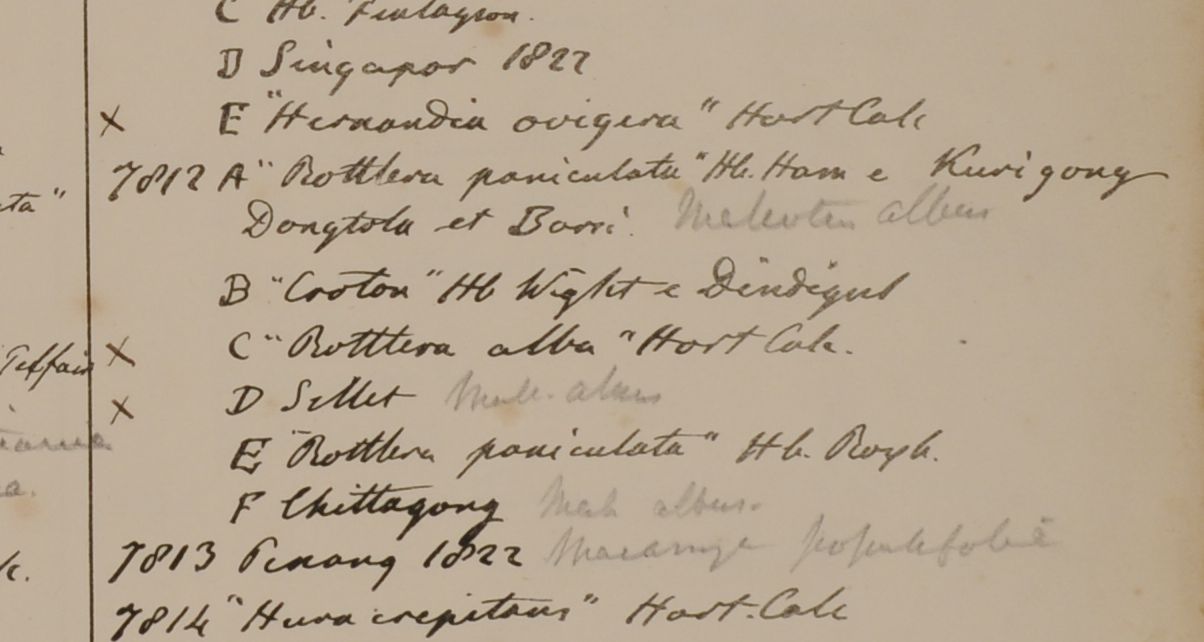 C Hb. Finlayson.
D Singapor 1822
x E "Hernandia ovigera" Hort Calc
7812 A "Rottlera paniculata" Hb. Ham e Kurigong
ta"
Dongtola et Borri. albus
B "Croton" Hb Wight e Dindigul
Telfair x C "Rottlera alba" Hort Calc.
x D Sillet Mall. albus
E "Rottlera paniculata" Hb. Roxb.
F Chittagong Mall albus.
7813 Penang 1822 Macaranga populifolia
7814 "Hura crepitans" Hort. Calc